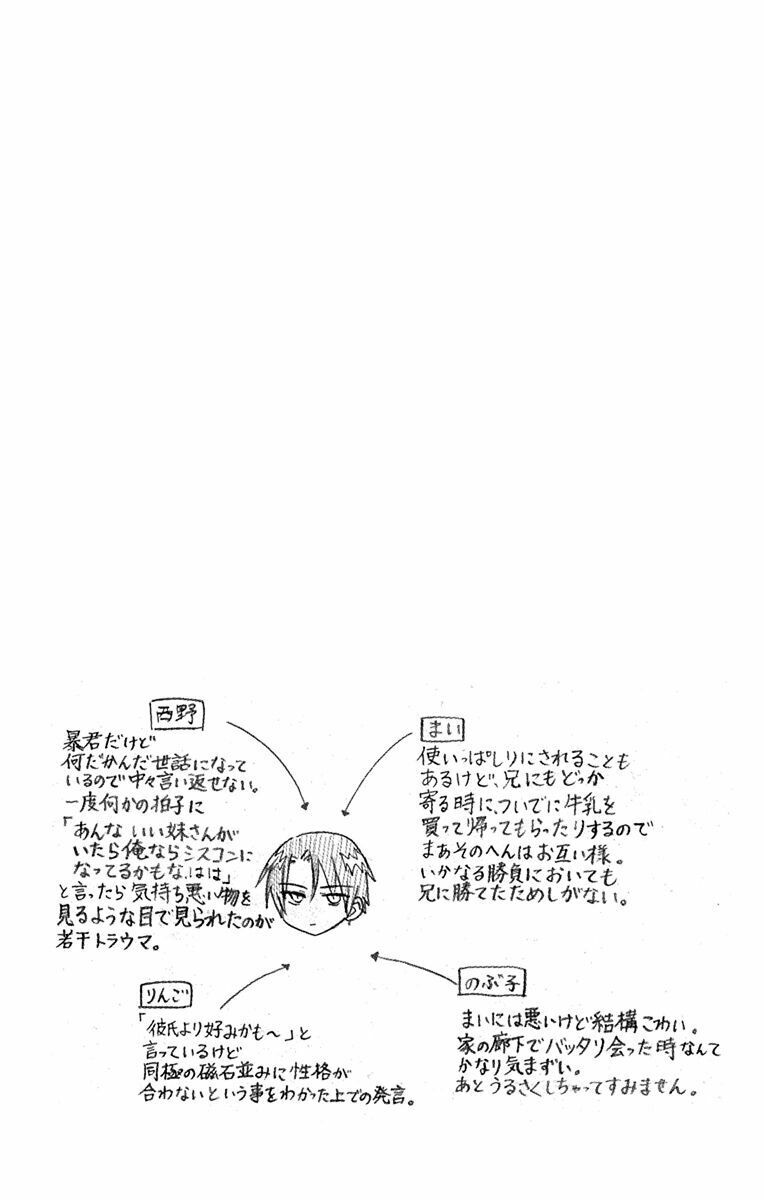 西野
暴君だけど
何だかんだ世話になって
いるので中々言い返せない。
一度何かの拍子に
「あんないい妹さんが
いたら俺ならシスコンに
なってるかもな、はは」
と言ったら気持ち悪い物を
見るような目で見られたのが
若干トラウマ。
まい
使いっぱしりにされることも
あるけど、兄にもどっか
寄る時に、ついでに牛乳を
買って帰ってもらったりするので
まぁそのへんはお互い様。
いかなる勝負においても
兄に勝てたためしがない。
りんご
「彼氏より好みかも~」と
言っているけど
同極の磁石並みに性格が
合わないという事をわかった上での発言。
のぶ子
まいには悪いけど結構こわい。
家の廊下でバッタリ会った時なんて
かなり気まずい。
あとうるさくしちゃってすみません。